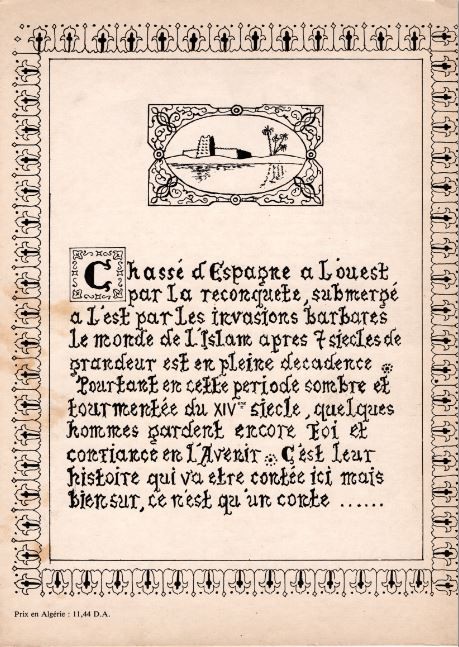 Chassé d'Espagne a L'ouest
par La reconquete, submergé
a L'est par Les invasions barbares
Le monde de L'Islam apres 7 siecles de
grandeur est en pleine decadence
Pourtant en cette periode sombre et
tourmentée du XIVème siecle, quelques
hommes gardent encore foi et
confiance en L'Avenir C'est leur
histoire qui va etre contée ici mais
bien sur, ce n'est qu'un conte ......
Prix en Algérie : 11,44 D.A.